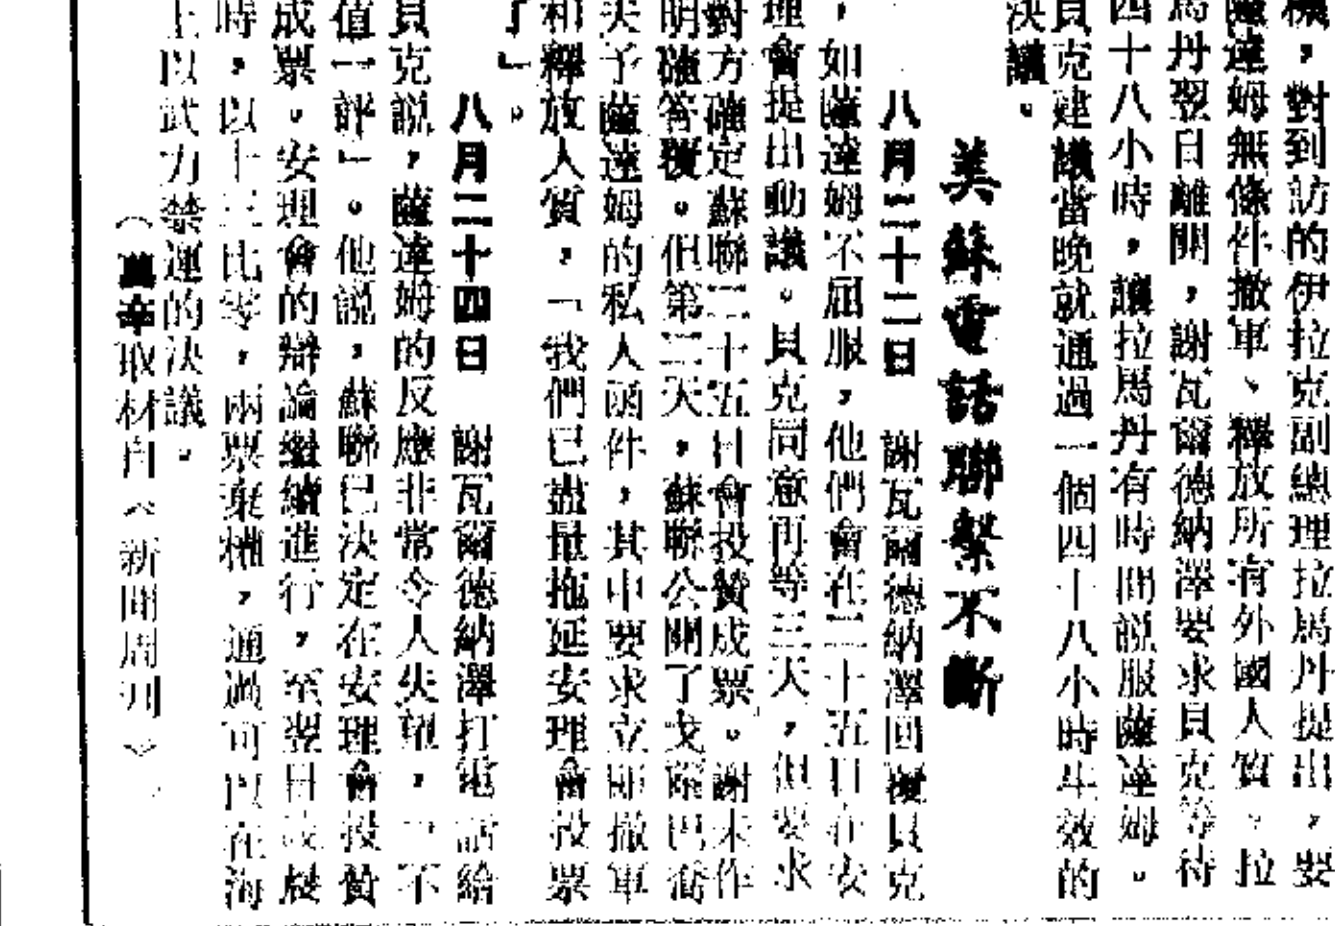 機，對到訪的伊拉克副總理拉馬丹提出，要
薩達姆無條件撤軍、釋放所有外國人質。拉
馬丹翌日離開，謝瓦爾德納澤要求貝克等待
四十八小時，讓拉馬丹有時間説服薩達姆。
貝克建議當晚就通過一個四十八小時生效的
決議。
美蘇電話聯繫不斷
八月二十二日　謝瓦爾德納澤回覆貝克
，如薩達姆不屈服，他們會在二十五日在安
理會提出動議。貝克同意再等三天，但要求
對方確定蘇聯二十五日會投贊成票。謝未作
明確答覆。但第二天，蘇聯公開了戈爾巴喬
夫予薩達姆的私人函件，其中要求立即撤軍
和釋放人質，「我們已盡量拖延安理會投票
了」。
八月二十四日　謝瓦爾德納澤打電話給
貝克説，薩達姆的反應非常令人失望，「不
值一評」。他説，蘇聯已決定在安理會投贊
成票。安理會的辯論繼續進行，至翌日凌晨
時，以十三比零，兩票棄權，通過可以在海
上以武力禁運的決議。
（萬辛取材自《新聞周刊》）